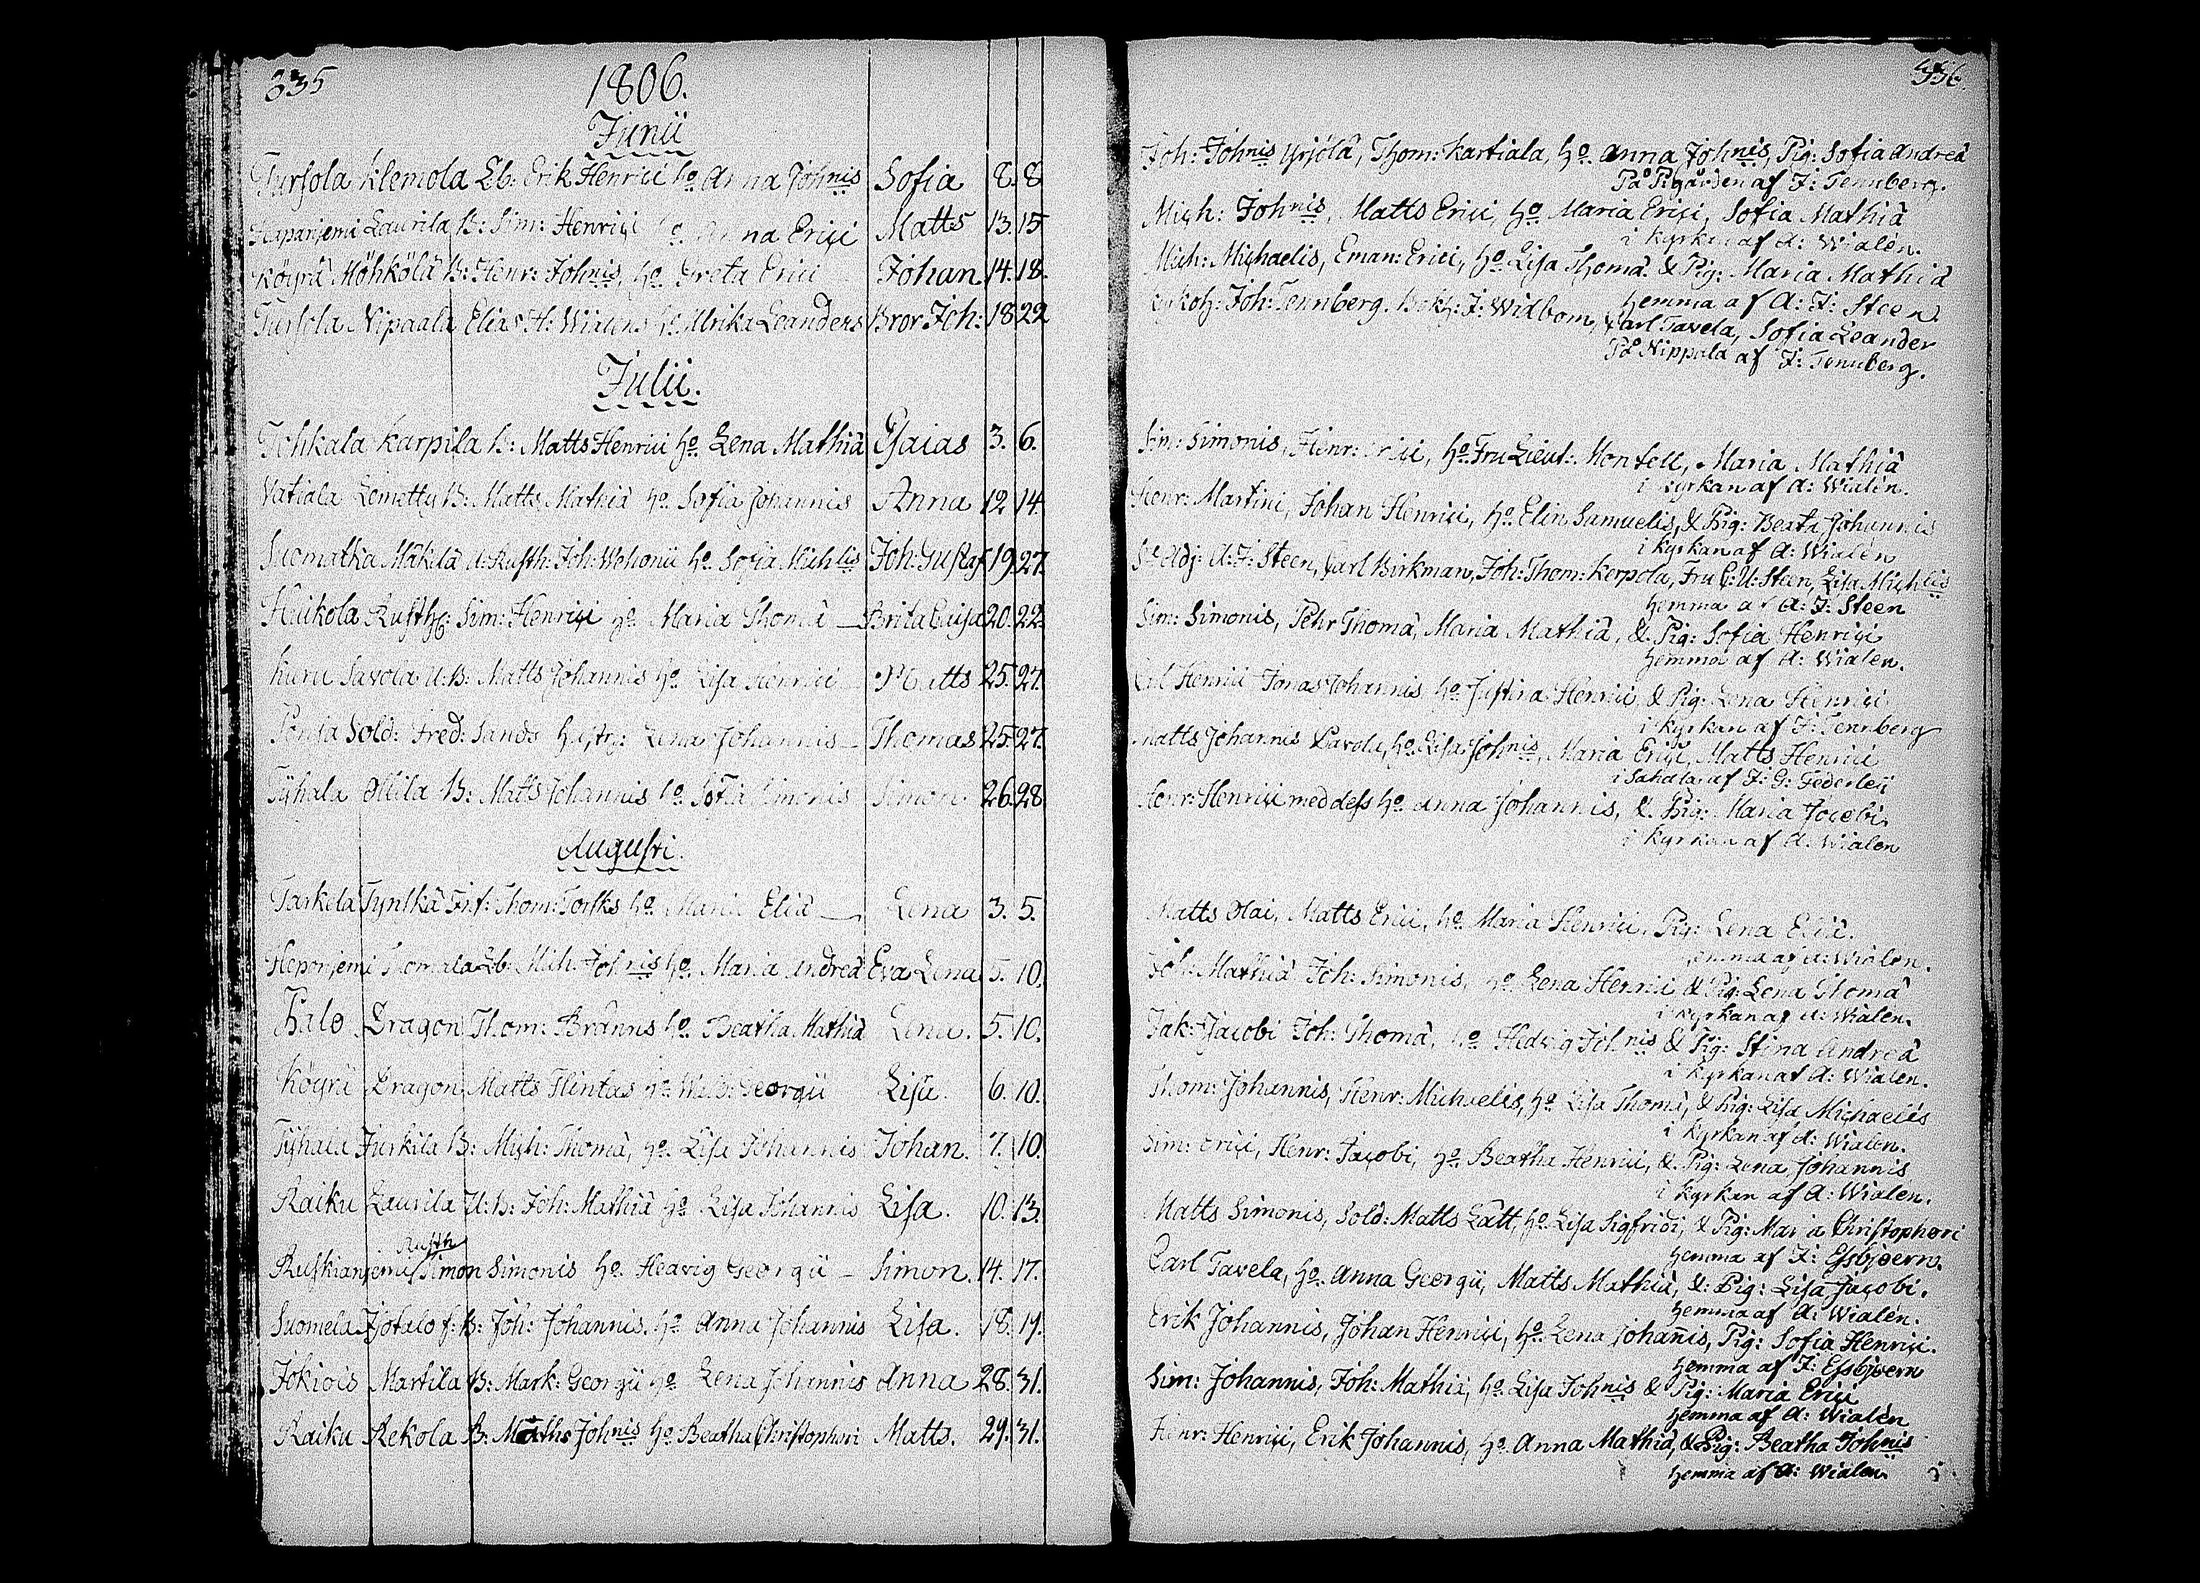 335
1806.
Junii
Tursola Klemola Lb: Erik Henrici ho Anna Johnis Sofia 8. 8
Haapaniemi Laurila B: Sim: Henrici ho Anna Erici Matts 13. 15
Köyrä Möhkölä B: Henr: Johnis, ho Greta Erici Johan 14. 18.
Tursola Nipaala Elias H: Wialens ho Ulrika Leanders Bror Joh: 18 22
Julii.
Tohkala Karpila B: Matts Henrici ho Lena Mathiä Esaias 3. 6.
Vatiala Lemetty B: Matts Mathiä ho Sofia Johannis Anna 12 14
Suomatka Mäkilä Rusth: Joh: ho Sofia Michlis Joh: Gustaf 19 27.
Huikola Rusth: Sim: Henrici ho Maria Thomä Brita Caisa 20. 22.
Kuru Savola U: B: Matts Johannis ho Lisa Henrici Matts 25. 27.
Ponsa Sold: Fred: Sands hustr: Lena Johannis Thomas 25. 27.
Tyhala Ollila B: Matts Johannis ho Sofia Simonis Simon 26. 28
Augusti.
Tarkela Tynlkä Inh: Thom: ho Maria Eliä Lena 3. 5.
Heponiemi Thomala Lb: Mich: Johnis ho Maria Andreä Eva Lena 5. 10.
Palo Dragon Thom: Bränns ho Beatha Mathiä Lena. 5. 10.
Köyrä Dragon Matts Flintas ho Walb: Georgii Lisa. 6. 10.
Tyhala Jurkila B: Mich: Thomä, ho Lisa Johannis Johan. 7. 10.
Raiku Laurila U: B: Joh: Mathiä ho Lisa Johannis Lisa. 10. 13.
Rusth
Ruskianjemi Simon Simonis ho Hedvig Georgii Simon. 14. 17.
Suomela Isotalo f: B: Joh: Johannis, ho Anna Johannis Lisa. 18. 19.
Jokiois Martila B: Mark: Georgii ho Lena Johannis Anna 28. 31.
Raiku Rekola B: Matts Johnis ho Beatha Christophori Matts. 29. 31.
336.
Joh: Johnis Yrjölä, Thom: Kartiala, ho Anna Johnis, Pig: Sofia Andreä
På Prgården af J: Tennberg.
Mich: Johnis, Matts Erici, ho Maria Erici, Sofia Mathiä
i kyrkan af A: Wialén.
Mich: Michaelis, Eman: Erici, ho Lisa Thomä & Pig: Maria Mathiä
hemma af A: J: Steen.
Joh: Tennberg. Bokh: J: Widbom, Carl Tavela, Sofia Leander
På Nippala af J: Tennberg.
Sim: Simonis, Henr: Erici, ho Fru Lieut: Montell, Maria Mathiä
i kyrkan af A: Wialén.
Henr: Martini, Johan Henrici, ho Elin Samuelis, & Pig: Beata Johannis
i kyrkan af A: Wialén
Adj: A: J: Steen, Carl Birkman, Joh: Thom: Kerpola, Fru C: U: Steen, Lisa Michlis
hemma af A: J: Steen
Sim: Simonis, Pehr Thomä, Maria Mathiä, & Pig: Sofia Henrici
hemma af A: Wialén.
Carl Henrici Jonas Johannis ho Justina Henrici & Pig: Lena Henrici
i kyrkan af J: Tennberg
Matts Johannis Savola, ho Lisa Johnis, Maria Erici, Matts Henrici
i Sahalax af J: G: Federley
Henr: Henrici med dess ho Anna Johannis, & Pig: Maria Jacobi.
i kyrkan af A: Wialén
Matts Olai, Matts Erici, ho Maria Henrici, Pig: Lena Eliä.
hemma af A: Wialén.
Joh: Mathiä Joh: Simonis, ho Lena Henrici & Pig: Lena Thomä
i kyrkan af A: Wialén.
Jak: Jacobi Joh: Thomä, ho Hedvig Johnis & Pig: Stina Andreä
i kyrkan af A: Wialén.
Thom: Johannis, Henr: Michaelis, ho Lisa Thomä, & Pig: Lisa Michaelis
i kyrkan af A: Wialén.
Sim: Erici, Henr: Jacobi, ho Beatha Henrici, & Pig: Lena Johannis
i kyrkan af A: Wialén.
Matts Simonis, Sold: Matts Lätt, ho Lisa Sigfridi, & Pig: Maria Christophori
hemma af J: Essbjoern.
Carl Tavela, ho Anna Georgii, Matts Mathiä, & Pig: Lisa Jacobi.
hemma af A: Wialén.
Erik Johannis, Johan Henrici, ho Lena Johannis, Pig: Sofia Henrici.
hemma af J: Essbjoern
Sim: Johannis, Joh: Mathiä, ho Lisa Johnis & Pig: Maria Erici
hemma af A: Wialén
Henr: Henrici, Erik Johannis, ho Anna Mathiä, & Pig: Beatha Johnis
hemma af A: Wialén